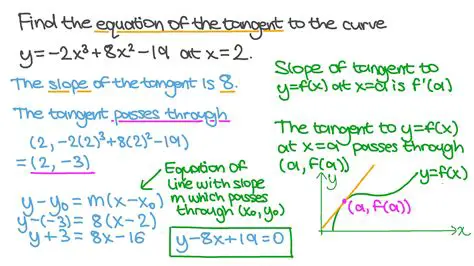 Find the equation of the tangent to the curve
y=-2x³+8x²-19 at x=2.
The slope of the tangent is 8.
The tangent passes through
(2, -2(2)³+8(2)²-19)
=(2, -3)
y-y₀=m(x-x₀)
y-(-3)=8(x-2)
y+3=8x-16
Equation of
line with slope
m which passes
through (x₀,y₀)
y-8x+19=0
Slope of tangent to
y=f(x) at x=a is f'(a)
The tangent to y=f(x)
at x=a passes through
(a, f(a))
y
y=f(x)
(a, f(a))
x